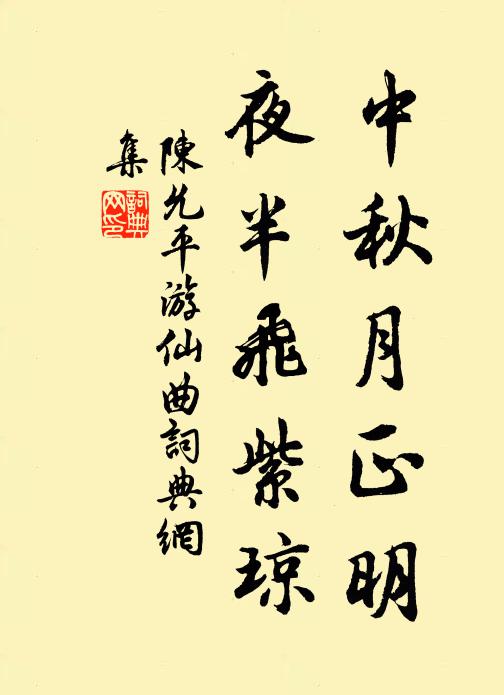 中秋月正明
夜半飛紫琼
陳允平游仙曲詞典網
集
詞典网印